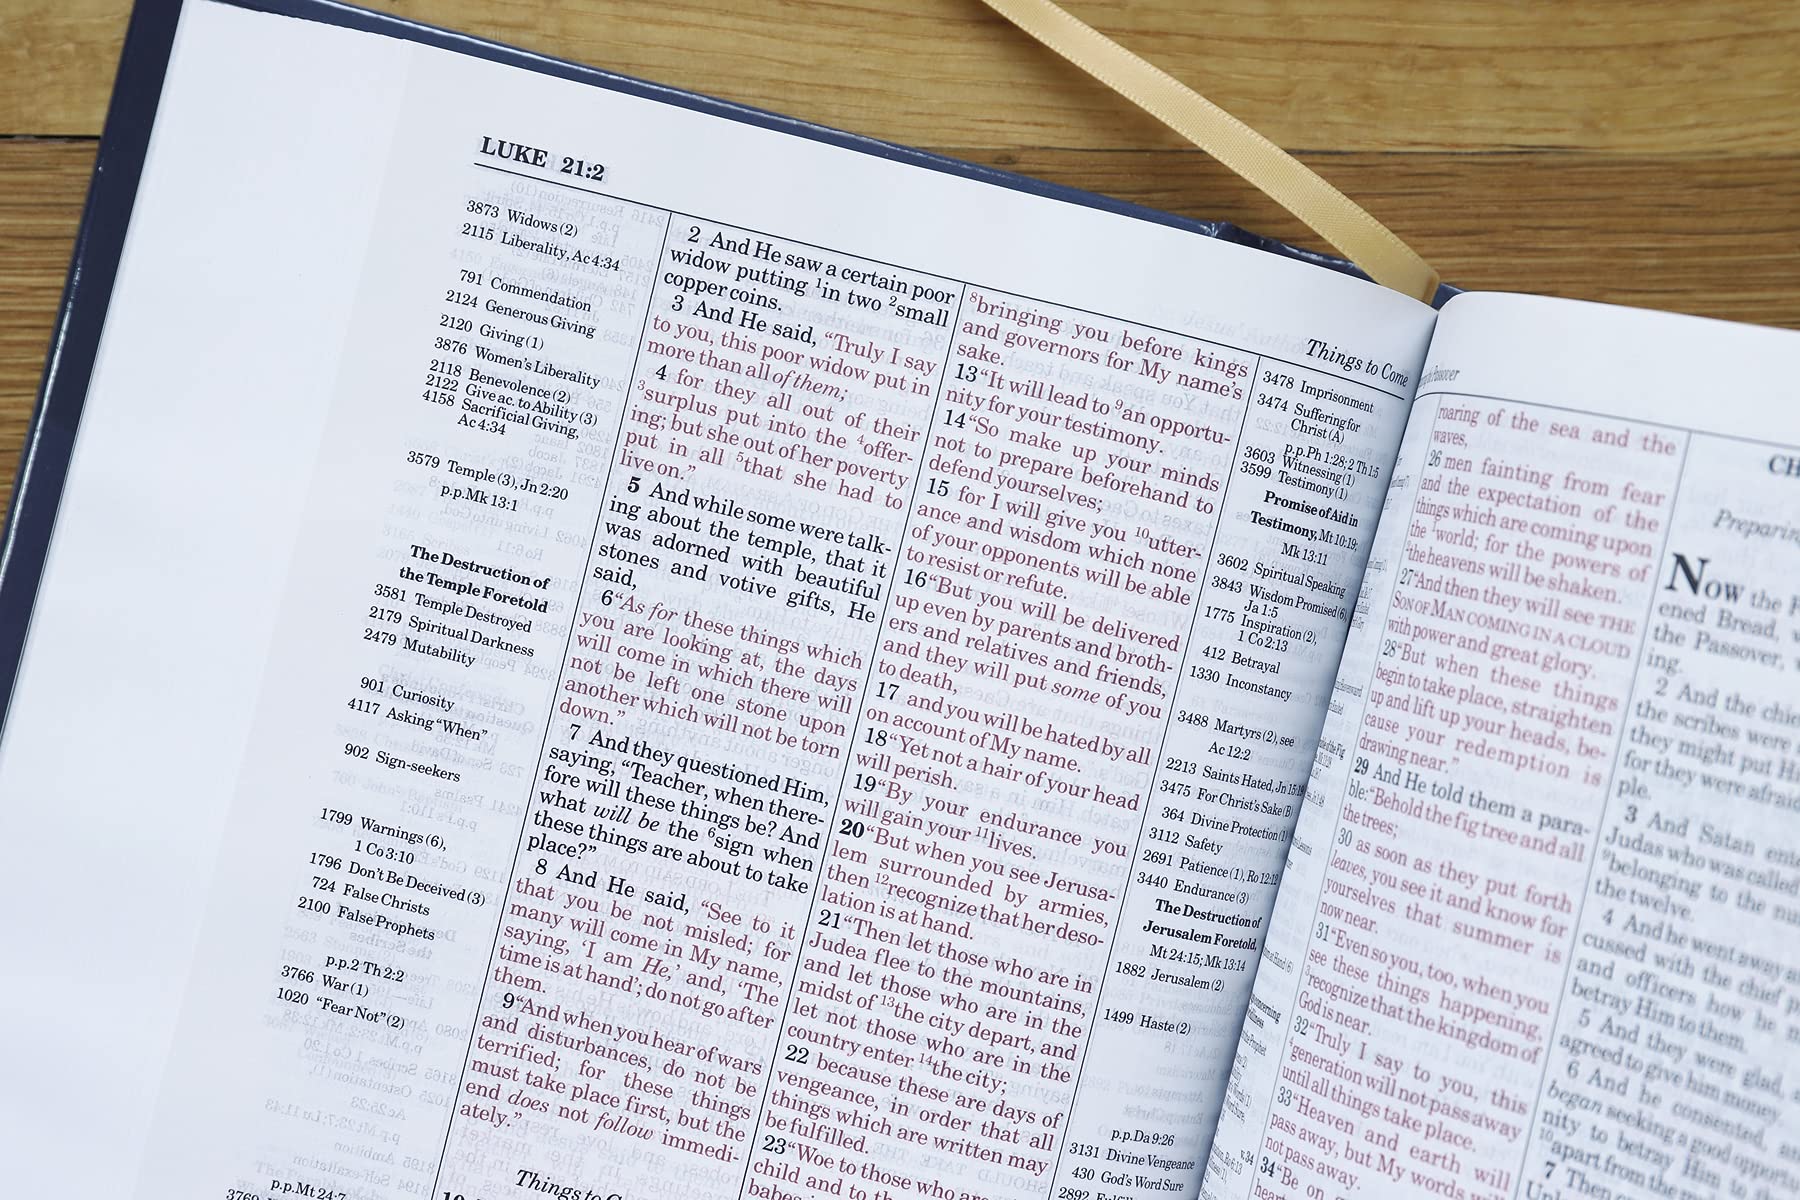 LUKE 21:2
3873 Widows (2)
2115 Liberality, Ac 4:34
791 Commendation
2124 Generous Giving
2120 Giving (1)
3876 Women's Liberality
2118 Benevolence (2)
2122 Give ac. to Ability (3)
4158 Sacrificial Giving,
Ac 4:34
3579 Temple (3), Jn 2:20
p.p. Mk 13:1
The Destruction of
the Temple Foretold
3581 Temple Destroyed
2179 Spiritual Darkness
2479 Mutability
901 Curiosity
4117 Asking "When"
902 Sign-seekers
1799 Warnings (6),
1 Co 3:10
1796 Don't Be Deceived (3)
724 False Christs
2100 False Prophets
p.p. 2 Th 2:2
3766 War (1)
1020 "Fear Not" (2)
p.p. Mt 24:7
2 And He saw a certain poor
widow putting 1in two 2small
copper coins.
3 And He said, "Truly I say
to you, this poor widow put in
more than all of them;
4 for they all out of their
3surplus put into the 4offer-
ing; but she out of her poverty
put in all 5that she had to
live on."
5 And while some were talk-
ing about the temple, that it
was adorned with beautiful
stones and votive gifts, He
said,
6 "As for these things which
you are looking at, the days
will come in which there will
not be left one stone upon
another which will not be torn
down."
7 And they questioned Him,
saying, "Teacher, when there-
fore will these things be? And
what will be the 6sign when
these things are about to take
place?"
8 And He said, "See to it
that you be not misled; for
many will come in My name,
saying, 'I am He,' and, 'The
time is at hand'; do not go after
them.
9 "And when you hear of wars
and disturbances, do not be
terrified; for these things
must take place first, but the
end does not follow immedi-
ately."
Things to
8bringing you before kings
and governors for My name's
sake.
13 "It will lead to 9an opportu-
nity for your testimony.
14 "So make up your minds
not to prepare beforehand to
defend yourselves;
15 for I will give you 10utter-
ance and wisdom which none
of your opponents will be able
to resist or refute.
16 "But you will be delivered
up even by parents and broth-
ers and relatives and friends,
and they will put some of you
to death,
17 and you will be hated by all
on account of My name.
18 "Yet not a hair of your head
will perish.
19 "By your endurance you
will gain your 11lives.
20 "But when you see Jerusa-
lem surrounded by armies,
then 12recognize that her deso-
lation is at hand.
21 "Then let those who are in
Judea flee to the mountains,
and let those who are in the
midst of 13the city depart, and
let not those who are in the
country enter 14the city;
22 because these are days of
vengeance, in order that all
things which are written may
be fulfilled.
23 "Woe to those who are
child and to
Things to Come
3478 Imprisonment
3474 Suffering for
Christ (A)
p.p. Ph 1:28; 2 Th 1:5
3603 Witnessing (1)
3599 Testimony (1)
Promise of Aid in
Testimony, Mt 10:19;
Mk 13:11
3602 Spiritual Speaking
3843 Wisdom Promised (6),
Ja 1:5
1775 Inspiration (2),
1 Co 2:13
412 Betrayal
1330 Inconstancy
3488 Martyrs (2), see
Ac 12:2
2213 Saints Hated, Jn 15:
3475 For Christ's Sake (B)
364 Divine Protection
3112 Safety
2691 Patience (1), Ro 12:12
3440 Endurance (3)
The Destruction of
Jerusalem Foretold,
Mt 24:15; Mk 13:14
1882 Jerusalem (2)
1499 Haste (2)
p.p. Da 9:26
3131 Divine Vengeance
430 God's Word Sure
2892
roaring of the sea and the
waves,
26 men fainting from fear
and the expectation of the
things which are coming upon
the world; for the powers of
the heavens will be shaken.
27 "And then they will see THE
SON OF MAN COMING IN A CLOUD
with power and great glory.
28 "But when these things
begin to take place, straighten
up and lift up your heads, be-
cause your redemption is
drawing near."
29 And He told them a para-
ble: "Behold the fig tree and all
the trees;
30 as soon as they put forth
leaves, you see it and know for
yourselves that summer is
now near.
31 "Even so you, too, when you
see these things happening,
recognize that the kingdom of
God is near.
32 "Truly I say to you, this
generation will not pass away
until all things take place.
33 "Heaven and earth will
pass away, but My words will
not pass away.
34 "Be on
CH
Preparing
NOW the
ened Bread,
the Passover,
ing.
2 And the chie
the scribes were
they might put H
for they were afraid
ple.
3 And Satan ente
Judas who was called
belonging to the nu
the twelve.
4 And he went away a
cussed with the chief p
and officers how he m
betray Him to them.
5 And they were glad,
agreed to give him money.
6 And he consented, an
began seeking a good opportu
nity to betray Him to
10apart from the
7 Then